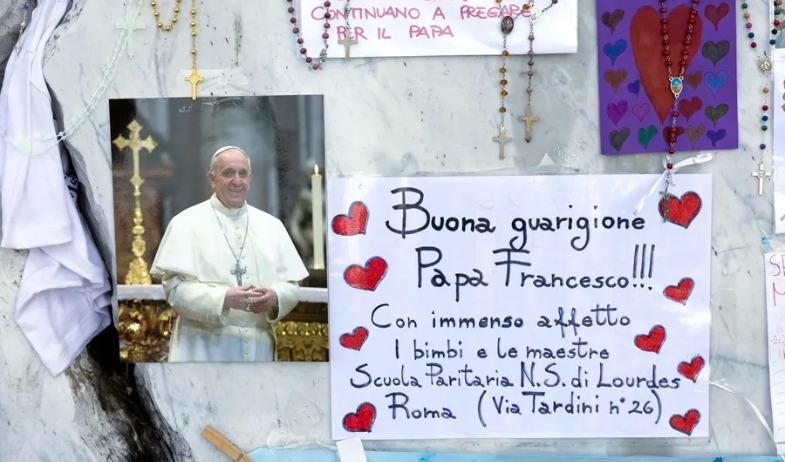 CONTINUANO A PREGARE
PER IL PAPA
Buona guarigione
Papa Francesco!!!
Con immenso affetto
I bimbi e le maestre
Scuola Paritaria N.S. di Lourdes
Roma (Via Tardini n° 26)